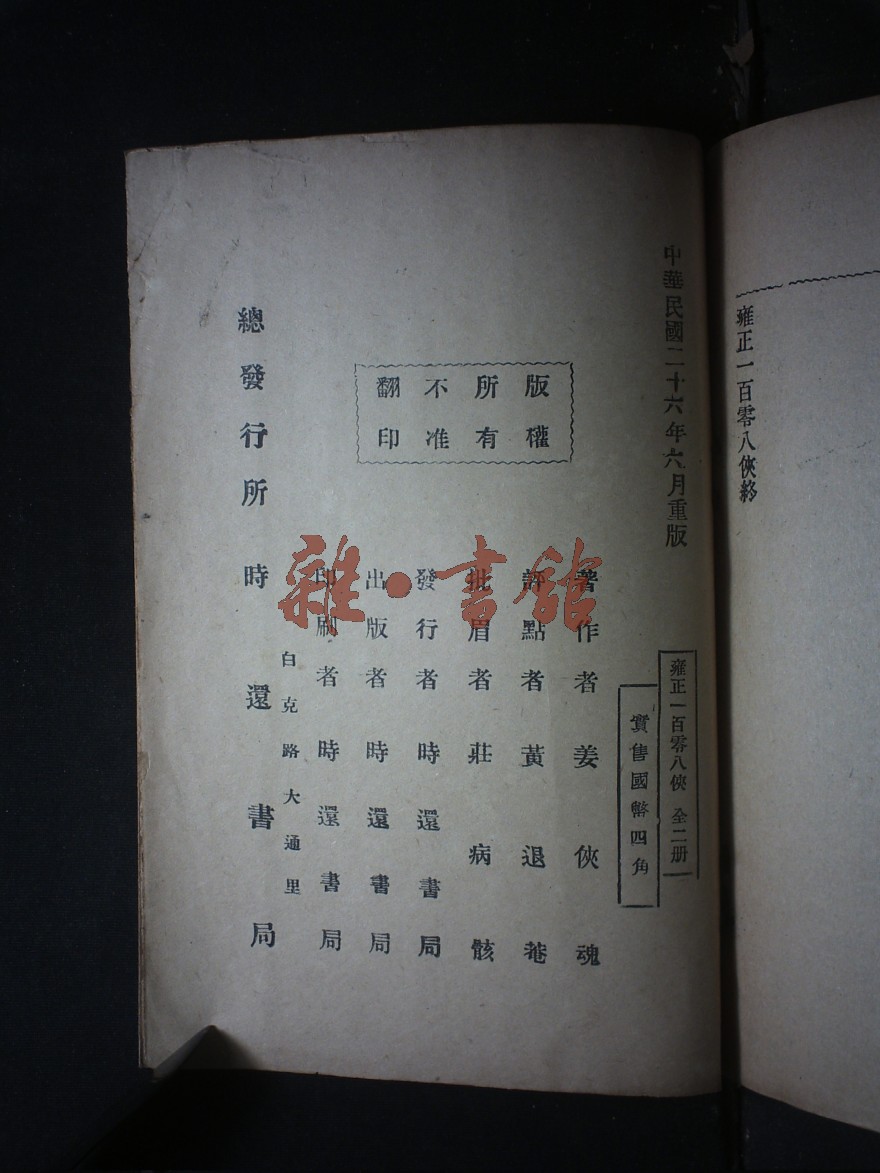 雍正一百零八俠終
中華民國二十六年六月重版
雍正一百零八俠 全二册
實售國幣四角
版權
所有
不准
翻印
著作者 姜俠魂
評點者 黃退菴
批眉者 莊病骸
發行者 時還書局
出版者 時還書局
印刷者 時還書局
白克路大通里
總發行所 時還書局
雜·書館